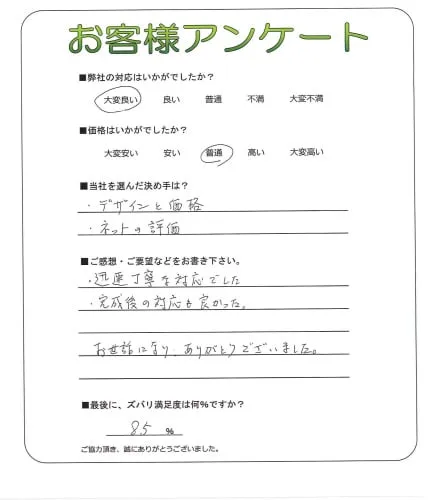 お客様アンケート
■弊社の対応はいかがでしたか？
大変良い 良い 普通 不満 大変不満
■価格はいかがでしたか？
大変安い 安い 普通 高い 大変高い
■当社を選んだ決め手は？
・デザインと価格
・ネットの評価
■ご感想・ご要望などをお書き下さい。
・迅速丁寧な対応でした
・完成後の対応も良かった。
お世話になり、ありがとうございました。
■最後に、ズバリ満足度は何％ですか？
85 %
ご協力頂き、誠にありがとうございました。